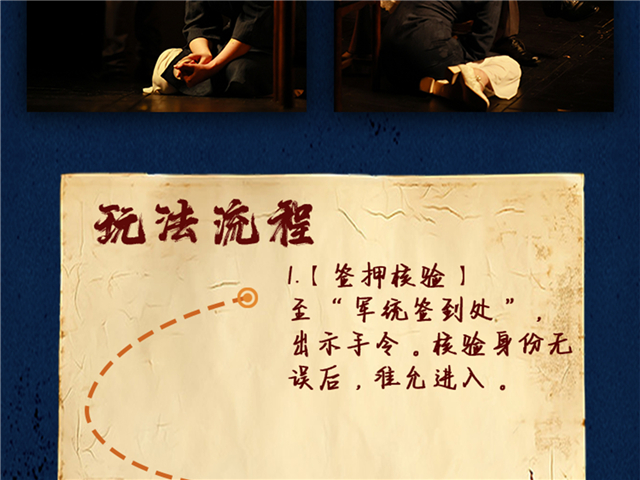 玩法流程
1.【签押核验】
至“军统签到处”，
出示手令。核验身份无
误后，准允进入。